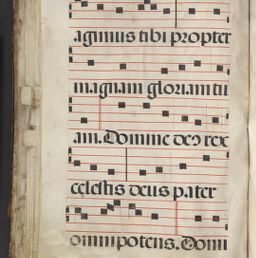 agimus tibi propter
magnam gloriam tu
am. Domine deus rex
celestis deus pater
omnipotens. Domi